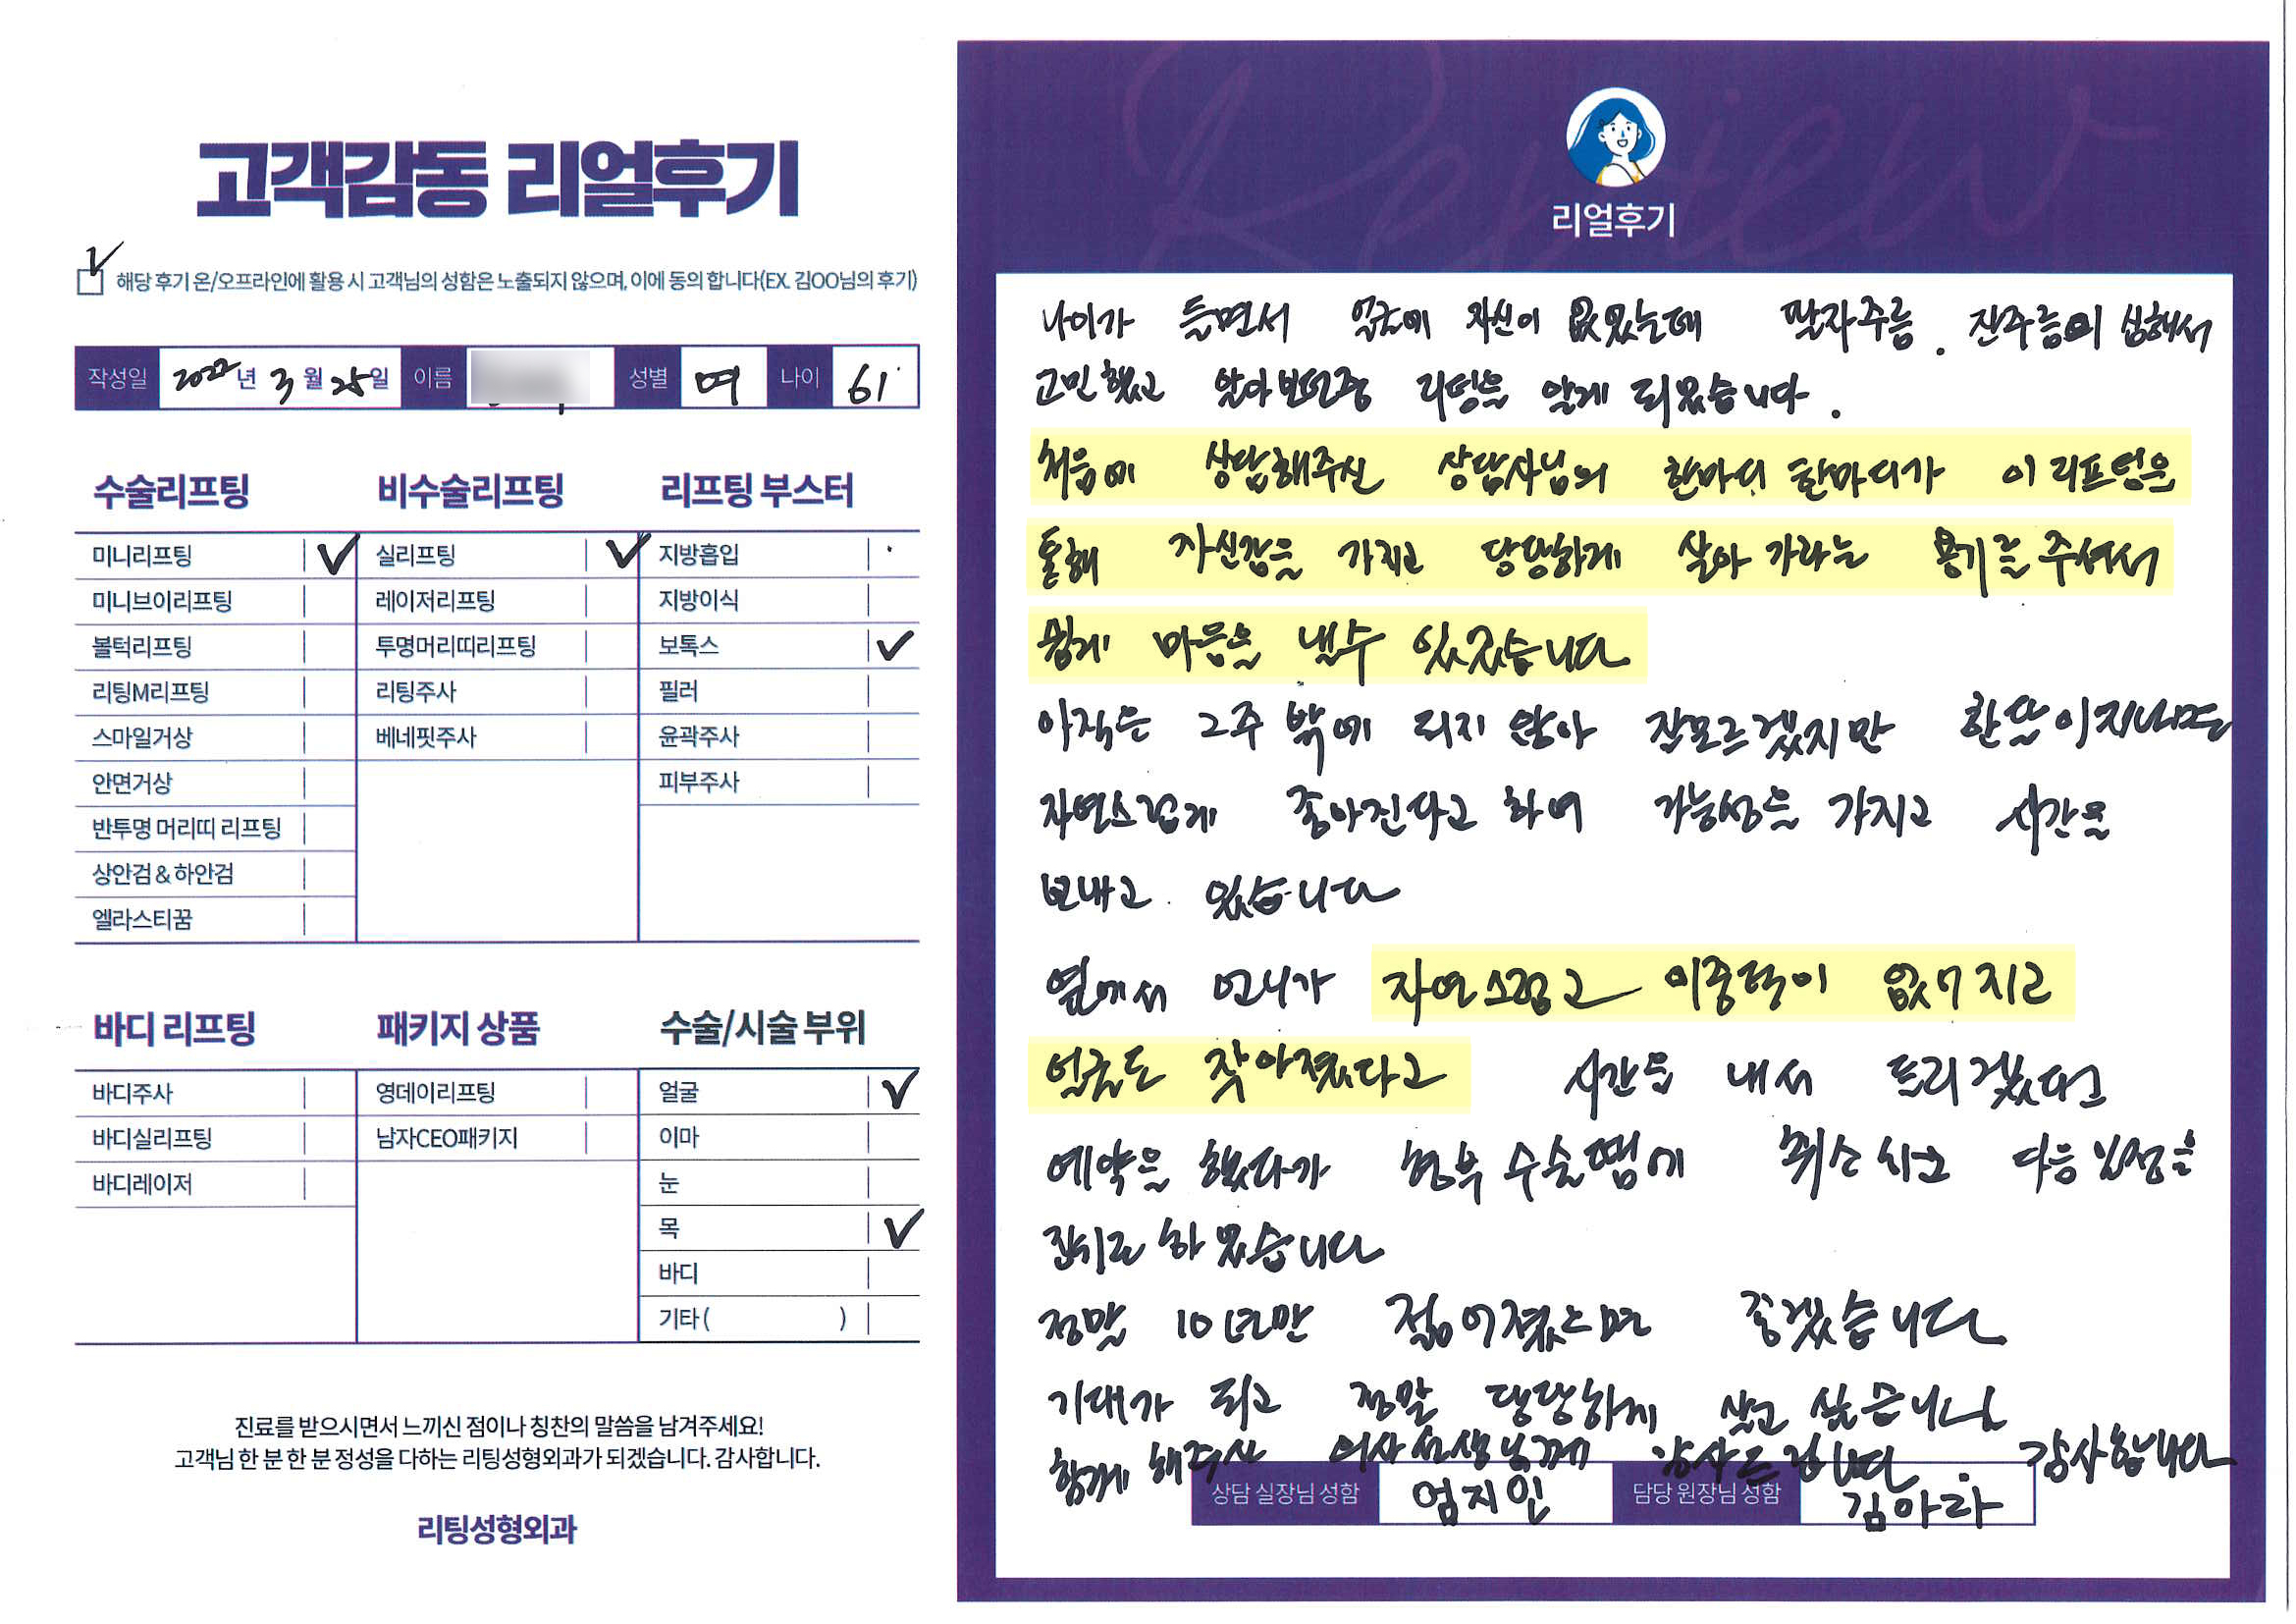 고객감동 리얼후기
해당 후기 온/오프라인에 활용 시 고객님의 성함은 노출되지 않으며, 이에 동의 합니다(EX. 김OO님의 후기)
작성일 2022년 3월 25일 이름 성별 여 나이 61
수술리프팅
미니리프팅 ✓
미니브이리프팅
볼턱리프팅
리팅M리프팅
스마일거상
안면거상
반투명 머리띠 리프팅
상안검 & 하안검
엘라스티꿈
비수술리프팅
실리프팅 ✓
레이저리프팅
투명머리띠리프팅
리팅주사
베네핏주사
리프팅 부스터
지방흡입
지방이식
보톡스 ✓
필러
윤곽주사
피부주사
바디 리프팅
바디주사
바디실리프팅
바디레이저
패키지 상품
영데이리프팅
남자CEO패키지
수술/시술 부위
얼굴 ✓
이마
눈
목 ✓
바디
기타 ( )
진료를 받으시면서 느끼신 점이나 칭찬의 말씀을 남겨주세요!
고객님 한 분 한 분 정성을 다하는 리팅성형외과가 되겠습니다. 감사합니다.
리팅성형외과
Review
리얼후기
나이가 들면서 얼굴에 자신이 없었는데 팔자주름. 잔주름이 심해서
고민했고 알아보던중 리팅을 알게 되었습니다.
처음에 상담해주신 상담사님의 한마디 한마디가 이 리프팅은
통해 자신감을 가지고 당당하게 살아 가라는 용기를 주셔서
쉽게 마음을 낼수 있었습니다
아직은 2주 밖에 되지 않아 잘모르겠지만 한달이지나면
자연스럽게 좋아진다고 하여 가능성을 가지고 시간을
보내고 있습니다
옆에서 언니가 자연스럽고 이중턱이 없어지고
얼굴도 작아졌다고 시간을 내서 드리겠다고
예약을 했다가 형부 수술땜에 취소 시고 다음 일정을
잡기로 하였습니다
정말 10년만 젊어졌으면 좋겠습니다
기대가 되고 정말 당당하게 살고 싶습니다
함께 해주신 의사선생님께 감사드립니다. 감사합니다
상담 실장님 성함 엄지인 담당 원장님 성함 김아라